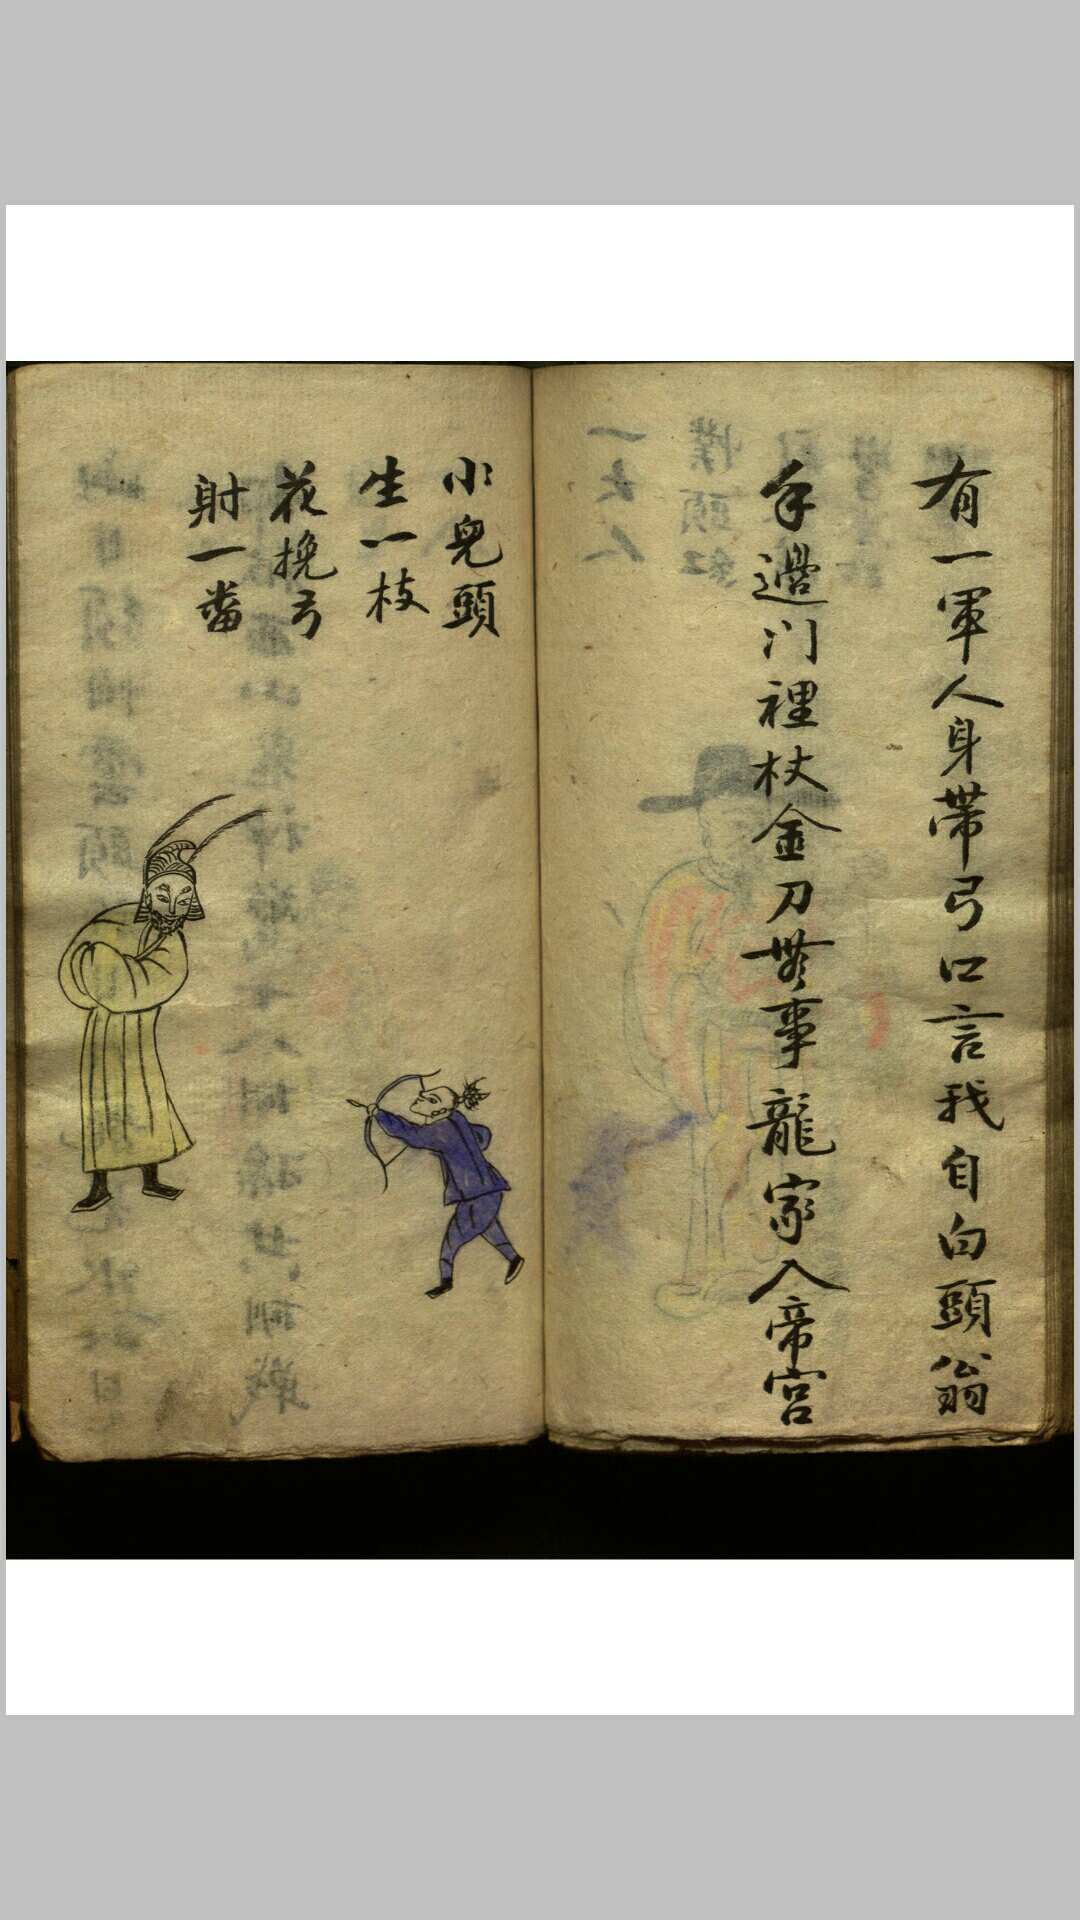 有一軍人身帶弓口言我自白頭翁
手邊门裡杖金刀無事龍家入帝宮
小兒頭
生一枝
花挽弓
射一畨